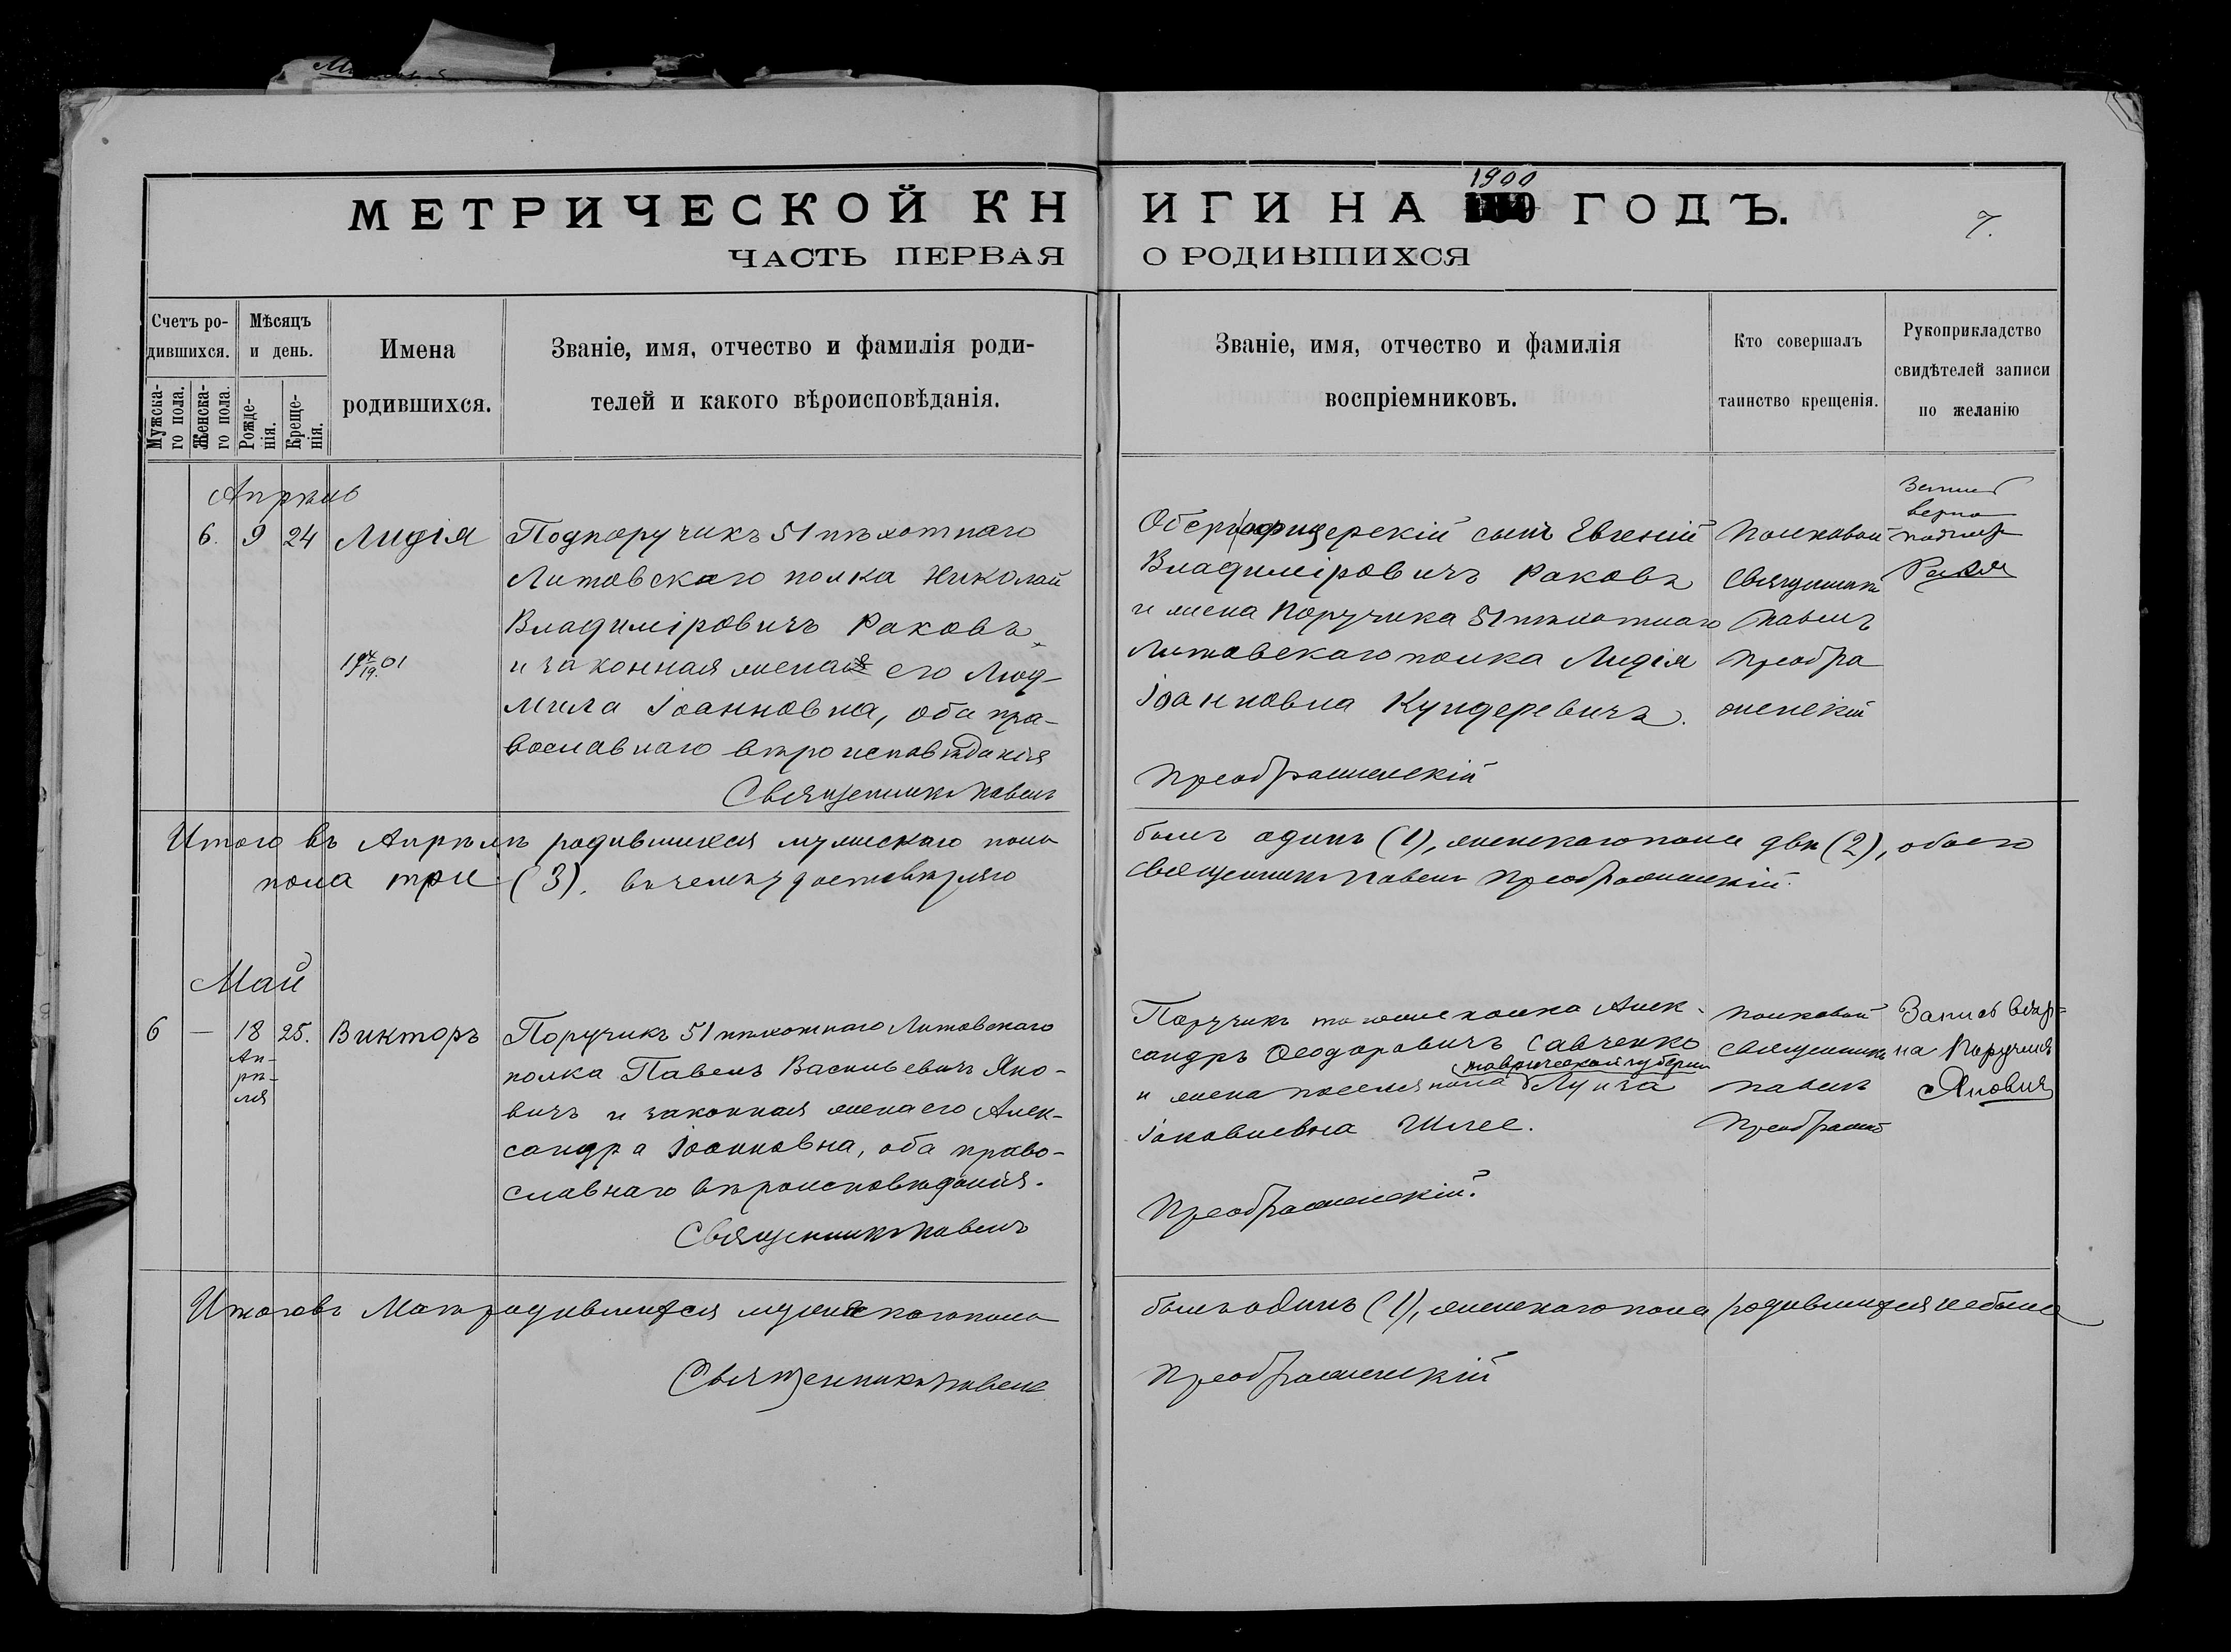 МЕТРИЧЕСКОЙ КНИГИ НА 1900 ГОДЪ.
7.
ЧАСТЬ ПЕРВАЯ О РОДИВШИХСЯ
Счетъ ро-
дившихся.
Мужска-
го пола.
Женска-
го пола.
Мѣсяцъ
и день.
Рожде-
нія.
Креще-
нія.
Имена
родившихся.
Званіе, имя, отчество и фамилія роди-
телей и какого вѣроисповѣданія.
Званіе, имя, отчество и фамилія
воспріемниковъ.
Кто совершалъ
таинство крещенія.
Рукоприкладство
свидѣтелей записи
по желанію
Апрѣль
6. 9 24 Лидія
Подпоручикъ 51 пѣхотнаго
Литовскаго полка Николай
Владиміровичъ Раковъ
и законная жена его Люд-
мила Іоанновна, оба пра-
вославнаго вѣроисповѣданія
Священникъ Павелъ
Оберъ офицерскій сынъ Евгеній
Владиміровичъ Раковъ
и жена Поручика 51 пѣхотнаго
Литовскаго полка Лидія
Іоанновна Кундеревичъ.
Преображенскій
Полковой
Священникъ
Павелъ
Преобра
женскій
верно
Итого въ Апрѣлѣ родившихся мужскаго пола
былъ одинъ (1), женскаго пола двѣ (2), обоего
пола три (3). въ чемъ удостовѣряю
Священникъ Павелъ Преображенскій.
Май
6 — 18 25. Викторъ
Ап-
рѣ-
ля
Поручикъ 51 пѣхотнаго Литовскаго
полка Павелъ Васильевичъ Яно-
вичъ и законная жена его Алек-
сандра Іоанновна, оба право-
славнаго вѣроисповѣданія.
Священникъ Павелъ
Поручикъ того же полка Алек-
сандръ Ѳеодоровичъ Савченко
таврической губерніи
и жена поселянина Луиза
Іаковлевна Шлее.
Преображенскій.
Полковой
Священникъ
Павелъ
Преображ
Запись вѣр-
на Поручикъ
Яновичъ
Итого въ Маѣ родившихся мужескаго пола
былъ одинъ (1), женскаго пола родившихся не было
Священникъ Павелъ
Преображенскій